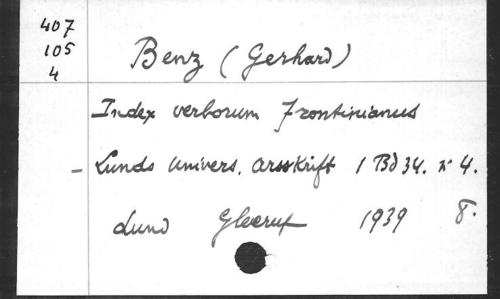 407
105
4
Benz (Gerhard)
Index verborum Frontinianus
- Lunds Univers. Arsskrift 1 Bd 34. nr 4.
Lund Gleerup 1939 8.